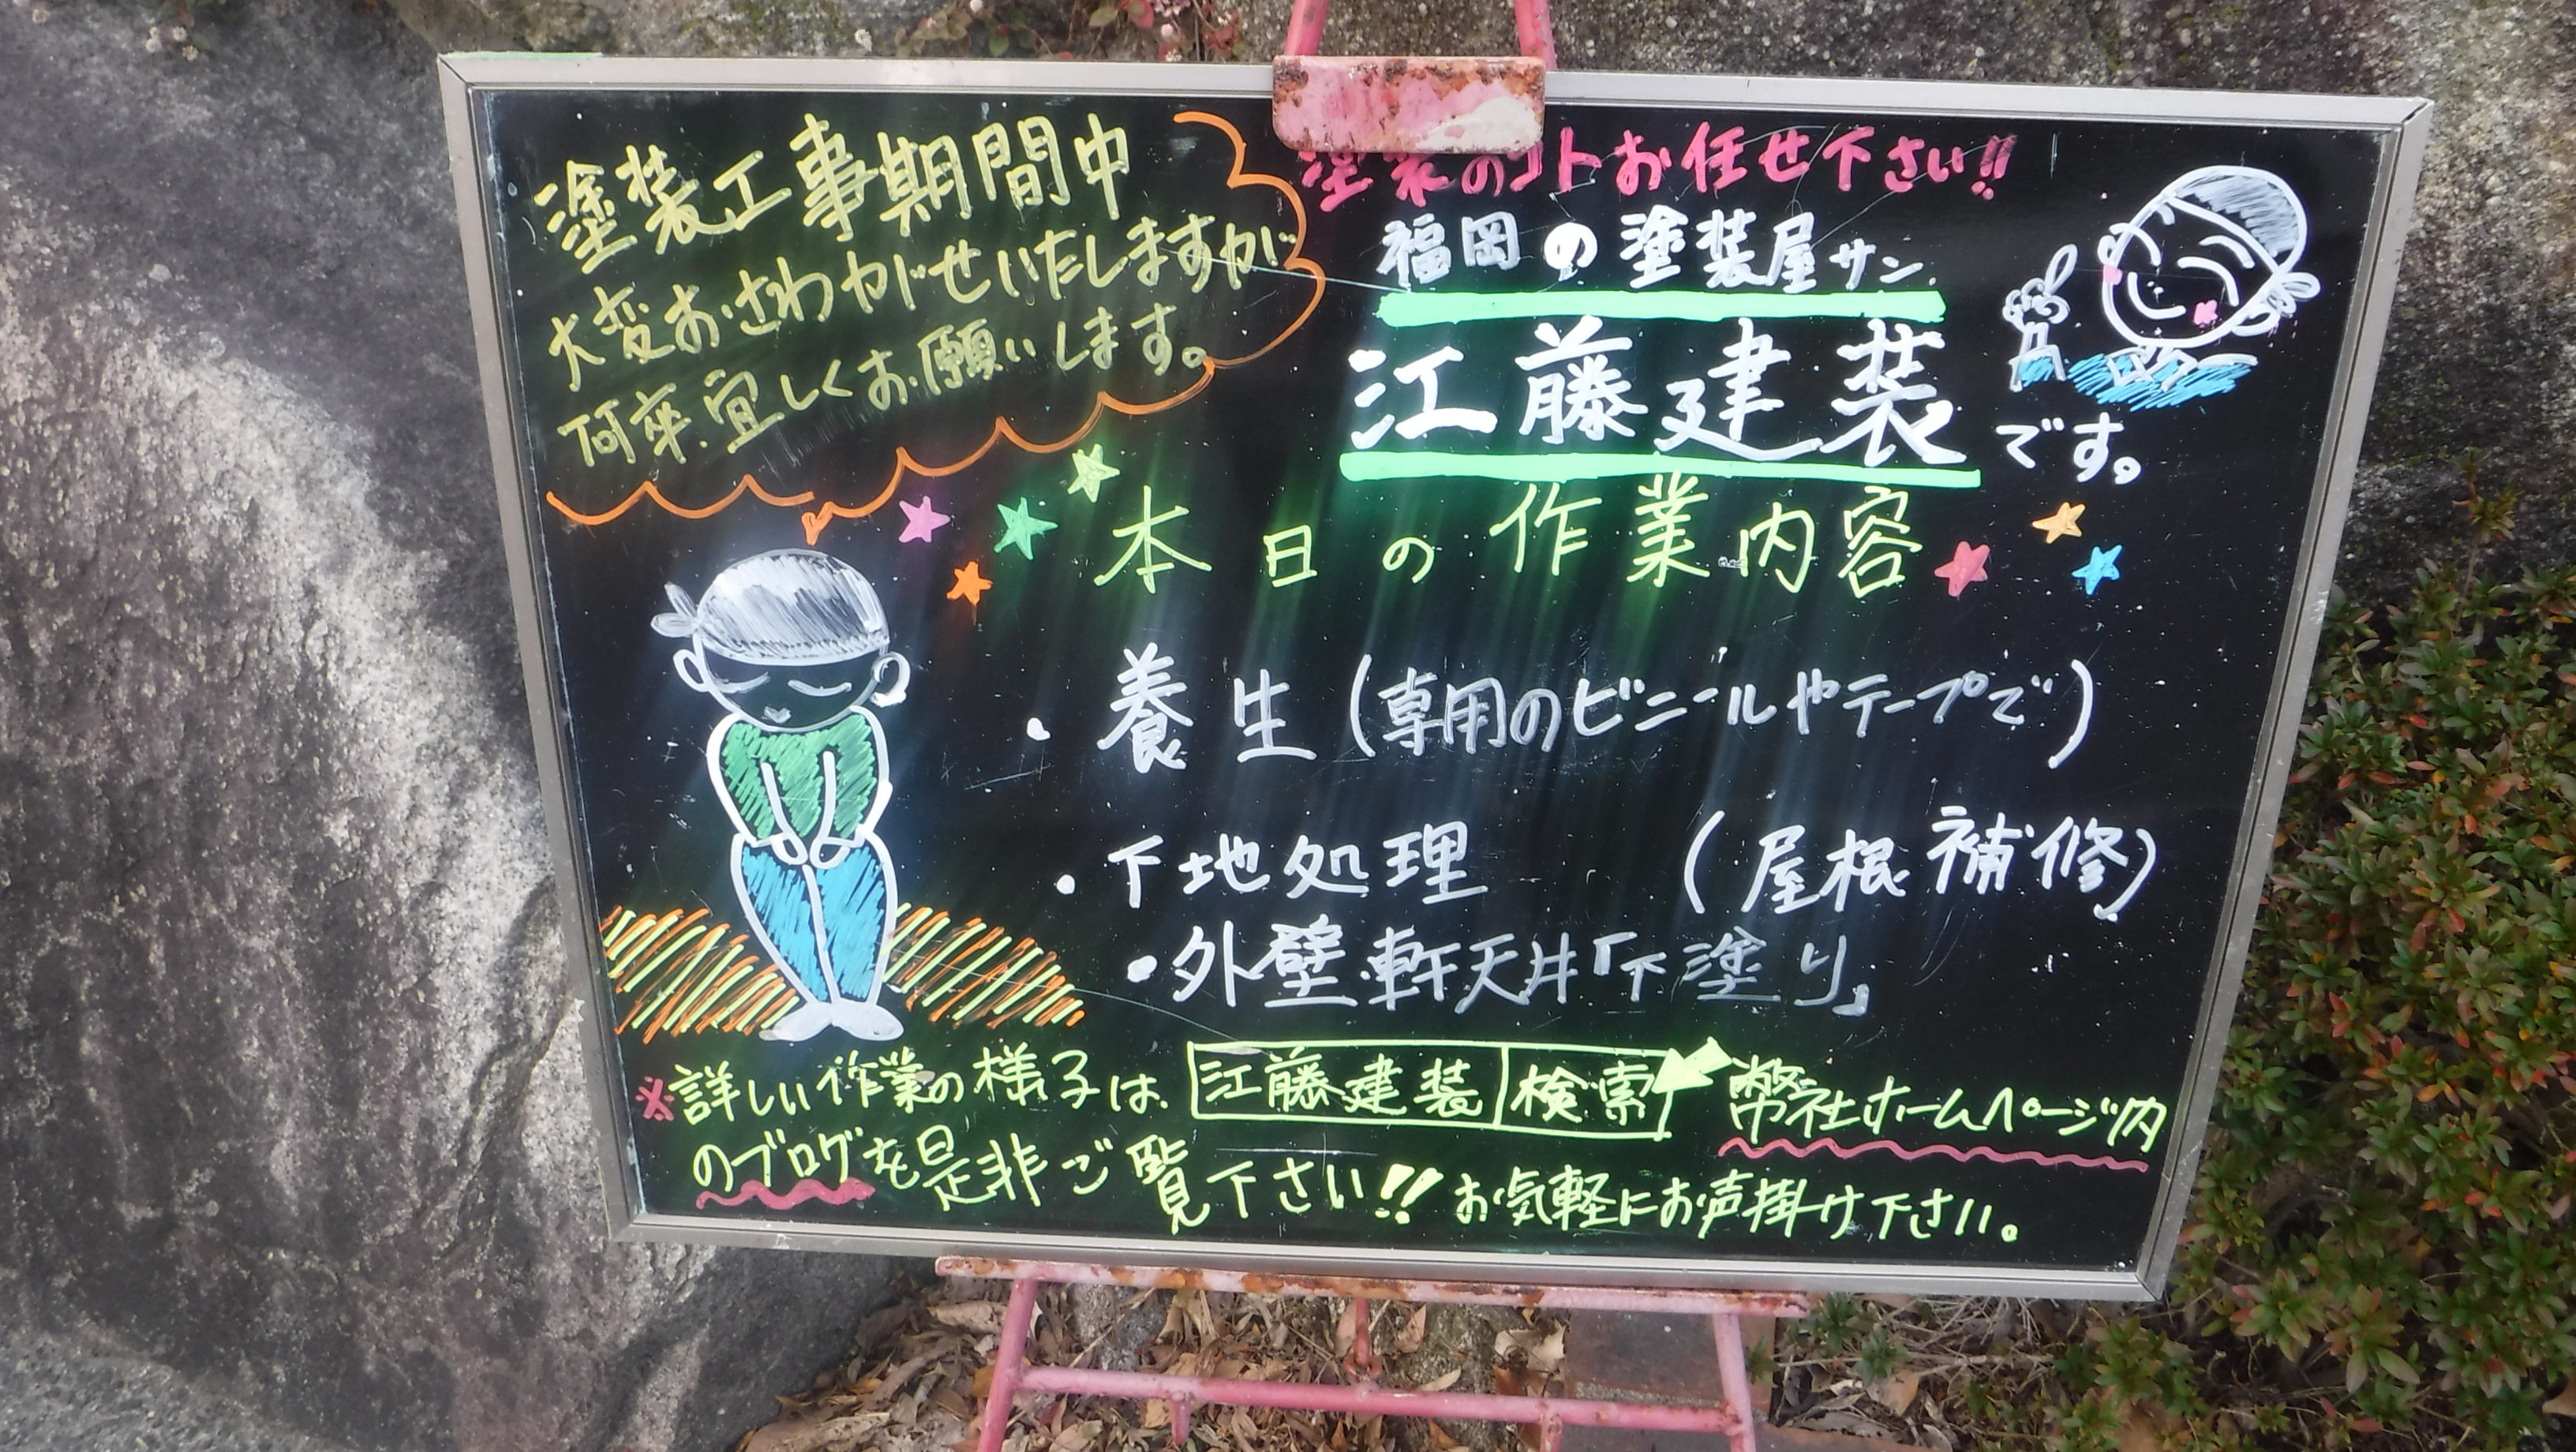 塗装工事期間中
大変おさわがせいたしますが
何卒宜しくお願いします。
塗装のコトお任せ下さい!!
福岡の塗装屋サン
江藤建装
です。
本日の作業内容
・養生(専用のビニールやテープで)
・下地処理 (屋根補修)
・外壁・軒天井「下塗り」
※詳しい作業の様子は、江藤建装 検索 弊社ホームページ内
のブログを是非ご覧下さい!! お気軽にお声掛け下さい。